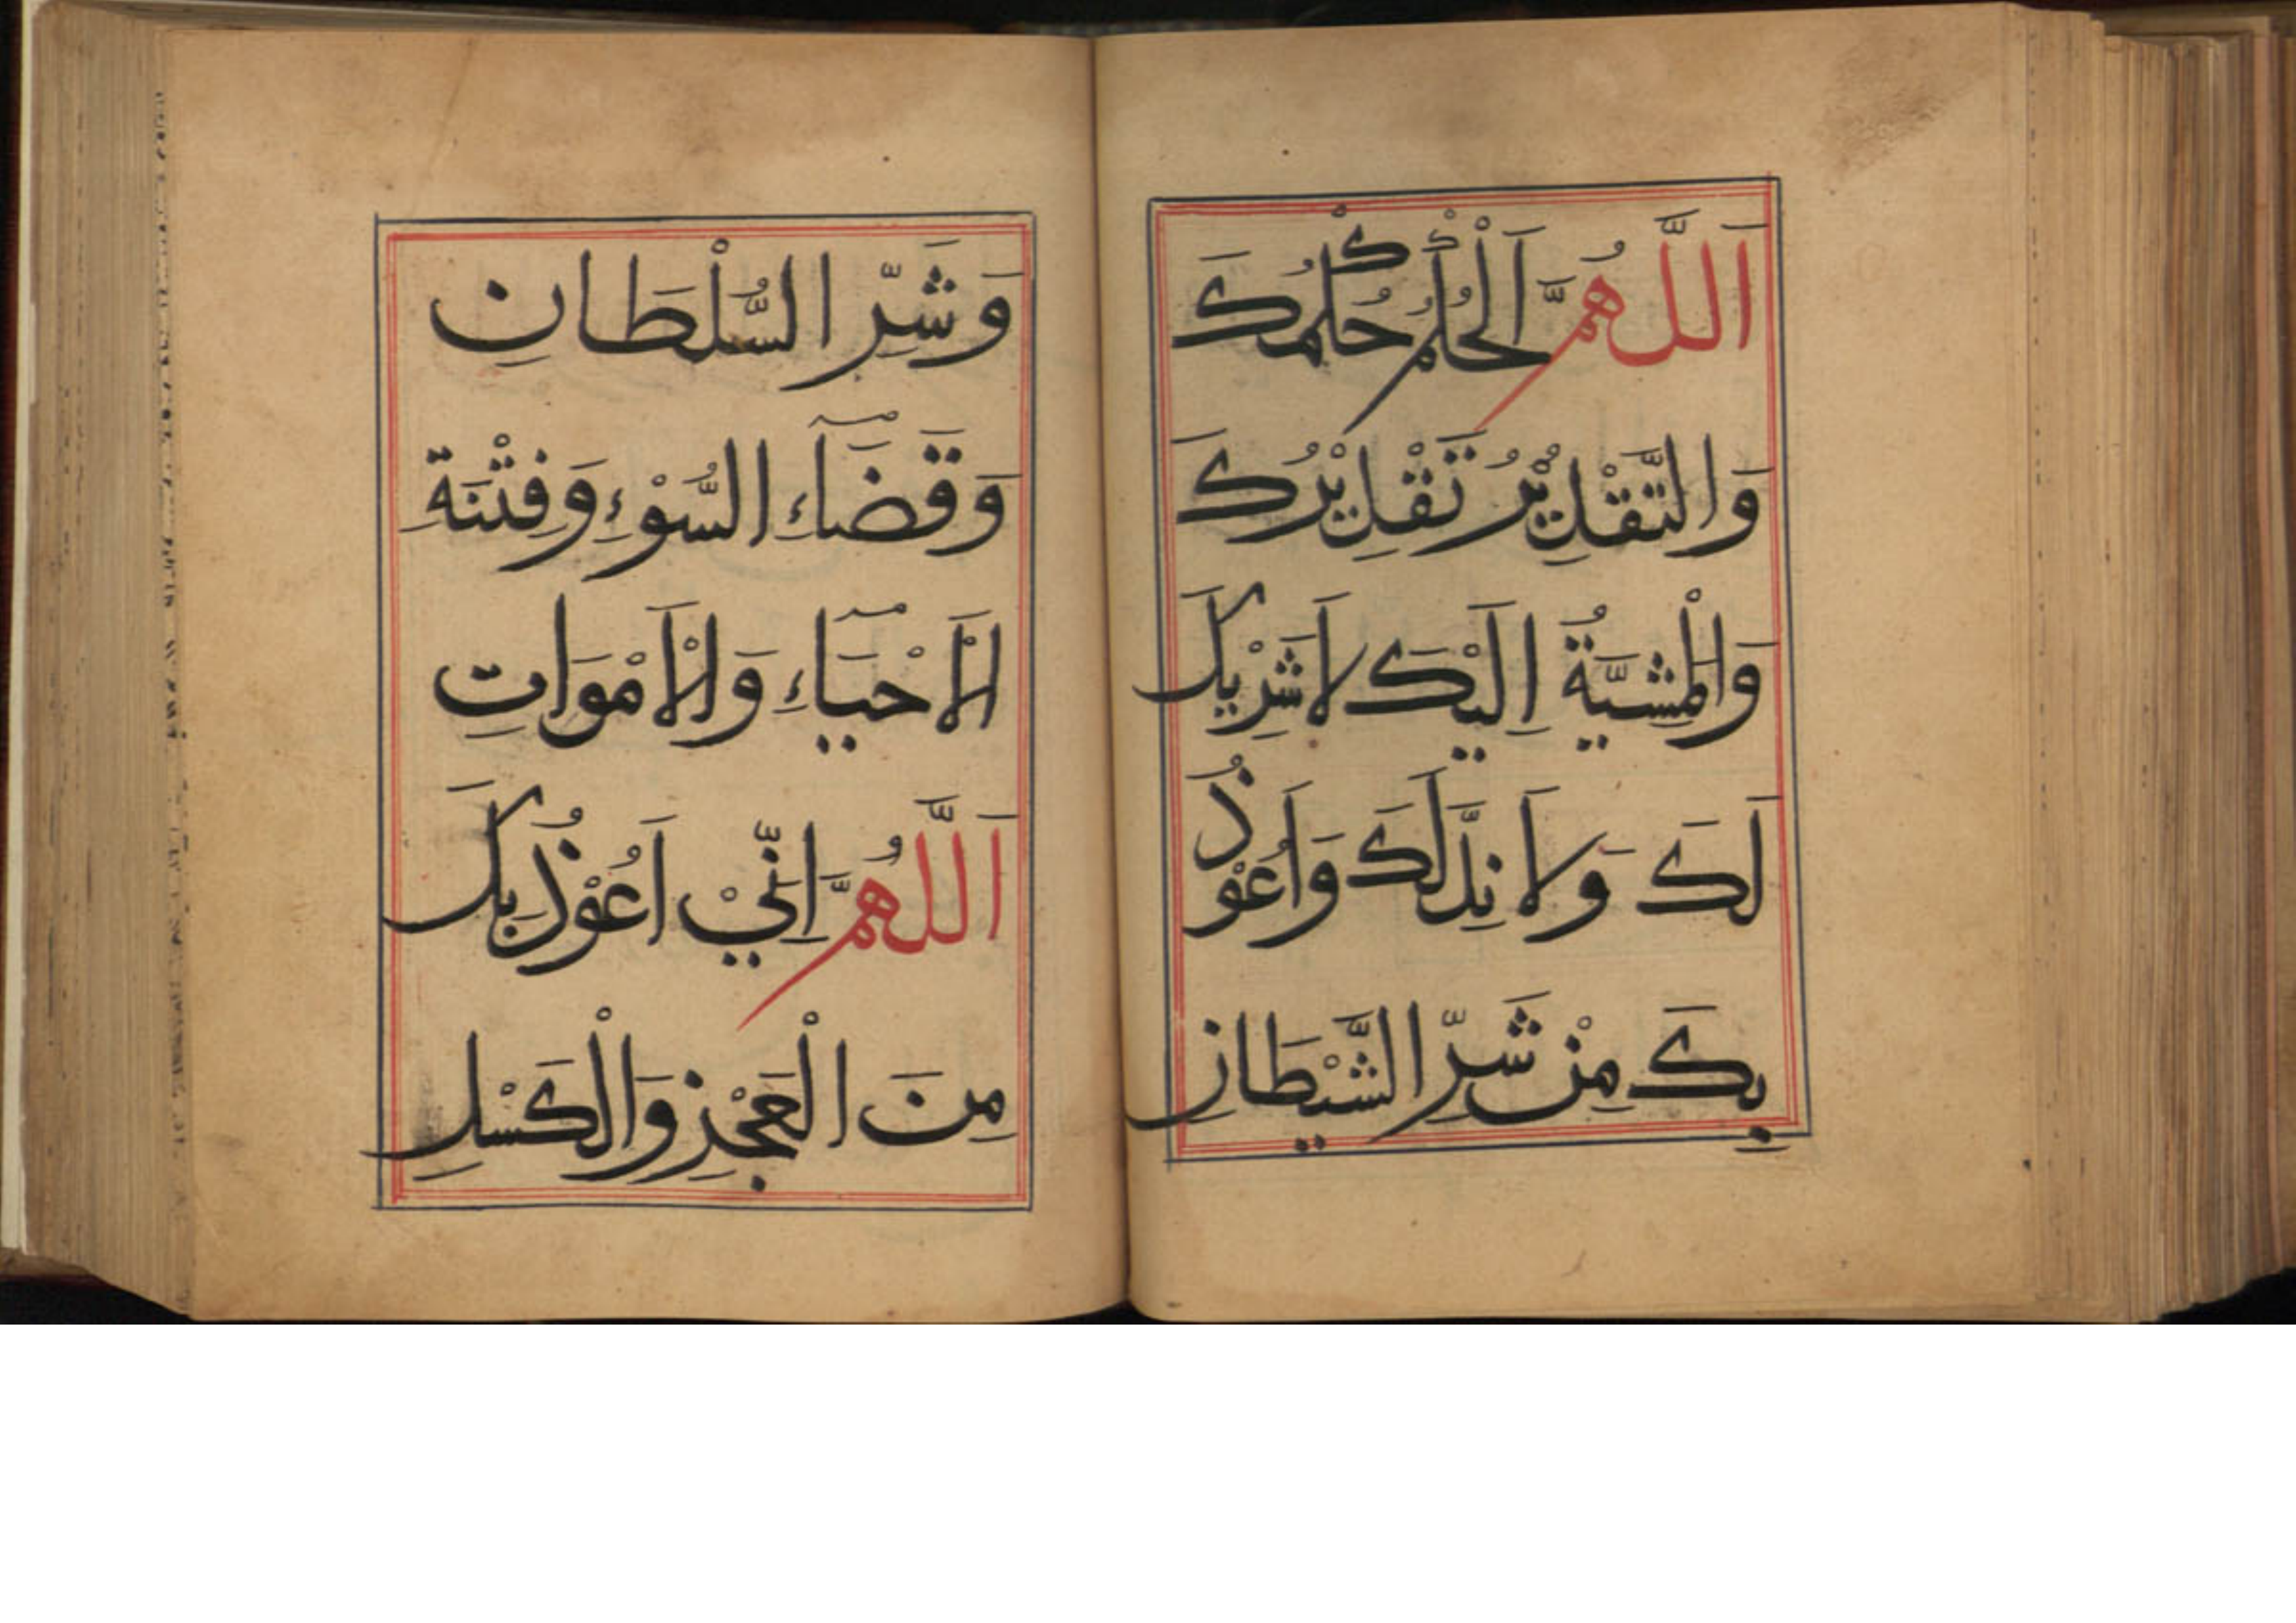 اَللَّهُمَّ اَلْحُكْمُ حُكْمُكَ
وَالتَّقْدِيْرُ تَقْدِيْرُكَ
وَالْمَشِيَّةُ اِلَيْكَ لَا شَرِيْكَ
لَكَ وَلَا نِدَّ لَكَ وَاَعُوْذُ
بِكَ مِنْ شَرِّ الشَّيْطَانِ
وَشَرِّ السُّلْطَانِ
وَقَضَآءِ السُّوْءِ وَفِتْنَةِ
الْاَحْيَآءِ وَالْاَمْوَاتِ
اَللَّهُمَّ اِنِّيْ اَعُوْذُ بِكَ
مِنَ الْعَجْزِ وَالْكَسْلِ